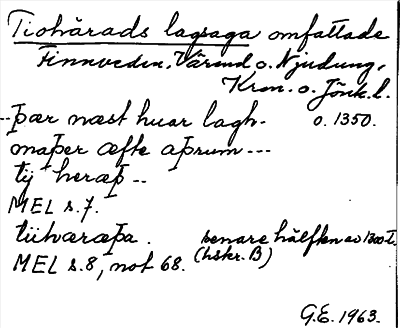 Tiohärads lagsaga omfattade
Finnveden, Värend o. Njudung,
Kron. o. Jönk. l.
--þær næst huar lagh- o. 1350.
maþer æfte aþrum---
tij heraþ--
MEL s. 7.
tiihæraþa. senare hälften av 1300-t.
MEL s. 8, not 68. (hskr. B)
G.E. 1963.